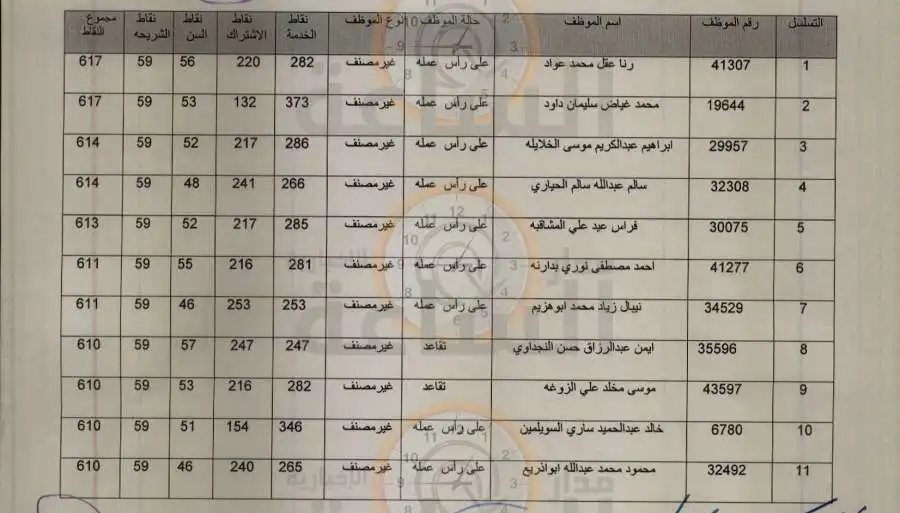 التسلسل رقم الموظف اسم الموظف حالة الموظف نوع الموظف نقاط الخدمة نقاط الاشتراك نقاط السن نقاط الشريحه مجموع النقاط
1 41307 رنا عقل محمد عواد على رأس عمله غيرمصنف 282 220 56 59 617
2 19644 محمد غياض سليمان داود على رأس عمله غيرمصنف 373 132 53 59 617
3 29957 ابراهيم عبدالكريم موسى الخلايله على رأس عمله غيرمصنف 286 217 52 59 614
4 32308 سالم عبدالله سالم الحياري على رأس عمله غيرمصنف 266 241 48 59 614
5 30075 فراس عيد علي المشاقبه على رأس عمله غيرمصنف 285 217 52 59 613
6 41277 احمد مصطفى نوري بدارنه على رأس عمله غيرمصنف 281 216 55 59 611
7 34529 نيبال زياد محمد ابوهزيم على رأس عمله غيرمصنف 253 253 46 59 611
8 35596 ايمن عبدالرزاق حسن النجداوي تقاعد غيرمصنف 247 247 57 59 610
9 43597 موسى مخلد علي الزوغه تقاعد غيرمصنف 282 216 53 59 610
10 6780 خالد عبدالحميد ساري السويلمين على رأس عمله غيرمصنف 346 154 51 59 610
11 32492 محمود محمد عبدالله ابواذريع على رأس عمله غيرمصنف 265 240 46 59 610
مدار الإخبارية